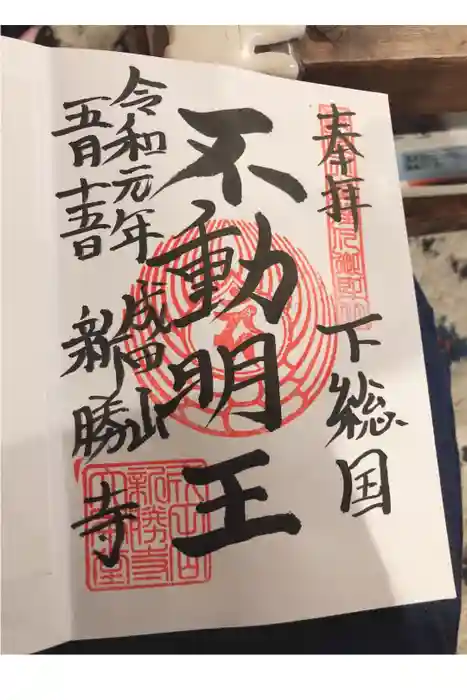 奉拝
下総国
不動明王
令和元年
五月十五日
成田山
新勝寺